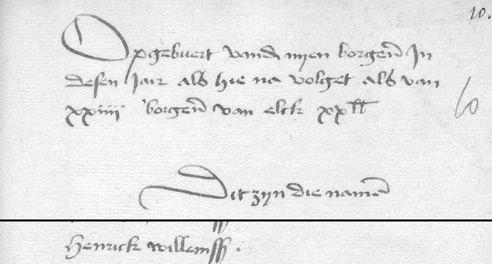 10.
Opgebuert vandn nyen borgern In
desen Jair als hie na volget als van
xxiiii borgern van elck xx ll
Dit zijn die namen
Henrick willemss.